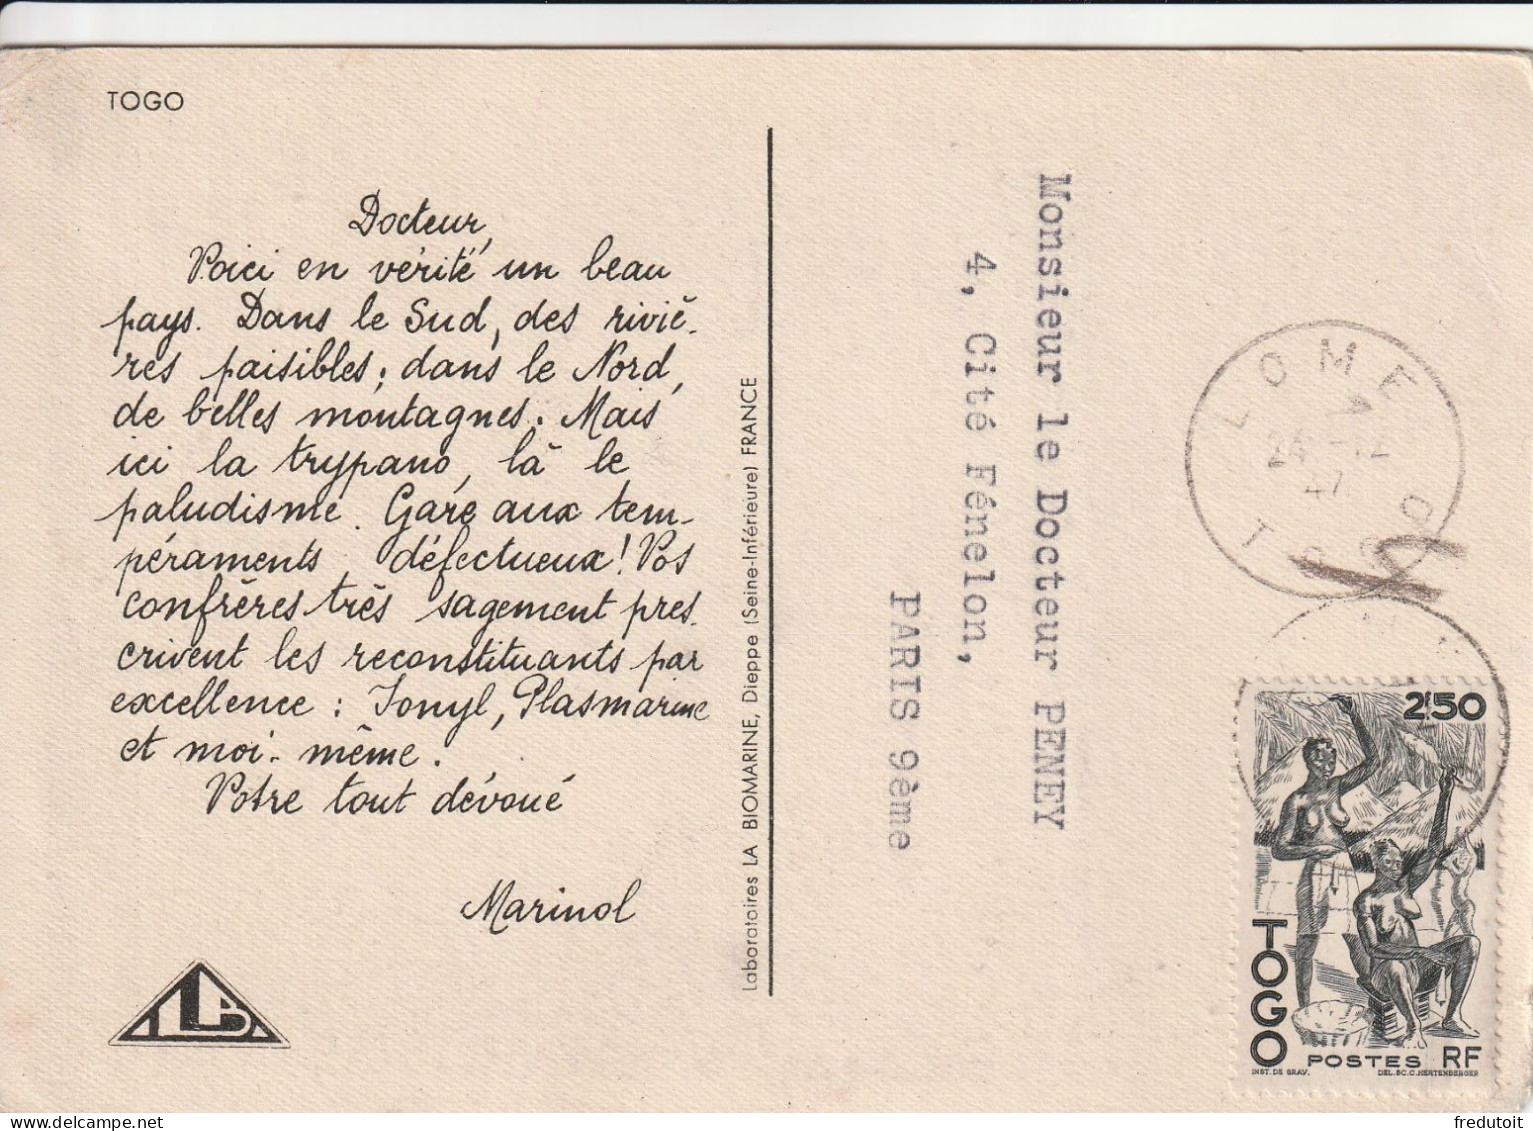 TOGO
Docteur,
Voici en vérité un beau
pays. Dans le Sud, des riviè-
res paisibles; dans le Nord,
de belles montagnes. Mais
ici la trypano, là le
paludisme. Gare aux tem-
péraments défectueux! Vos
confrères très sagement pres-
crivent les reconstituants par
excellence : Ionyl, Plasmarine
et moi-même.
Votre tout dévoué
Marinol
Laboratoires LA BIOMARINE, Dieppe (Seine-Inférieure) FRANCE
Monsieur le Docteur PENEY
4, Cité Fénelon,
PARIS 9ème
LOME
24 -12
47
TOGO
2F50
TOGO
POSTES RF
INST. DE GRAV. DEL. SC. C. HERTENBERGER
LB
fredutoit